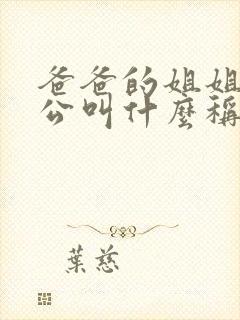 爸爸的姐姐
公叫什麼稱
葉慈